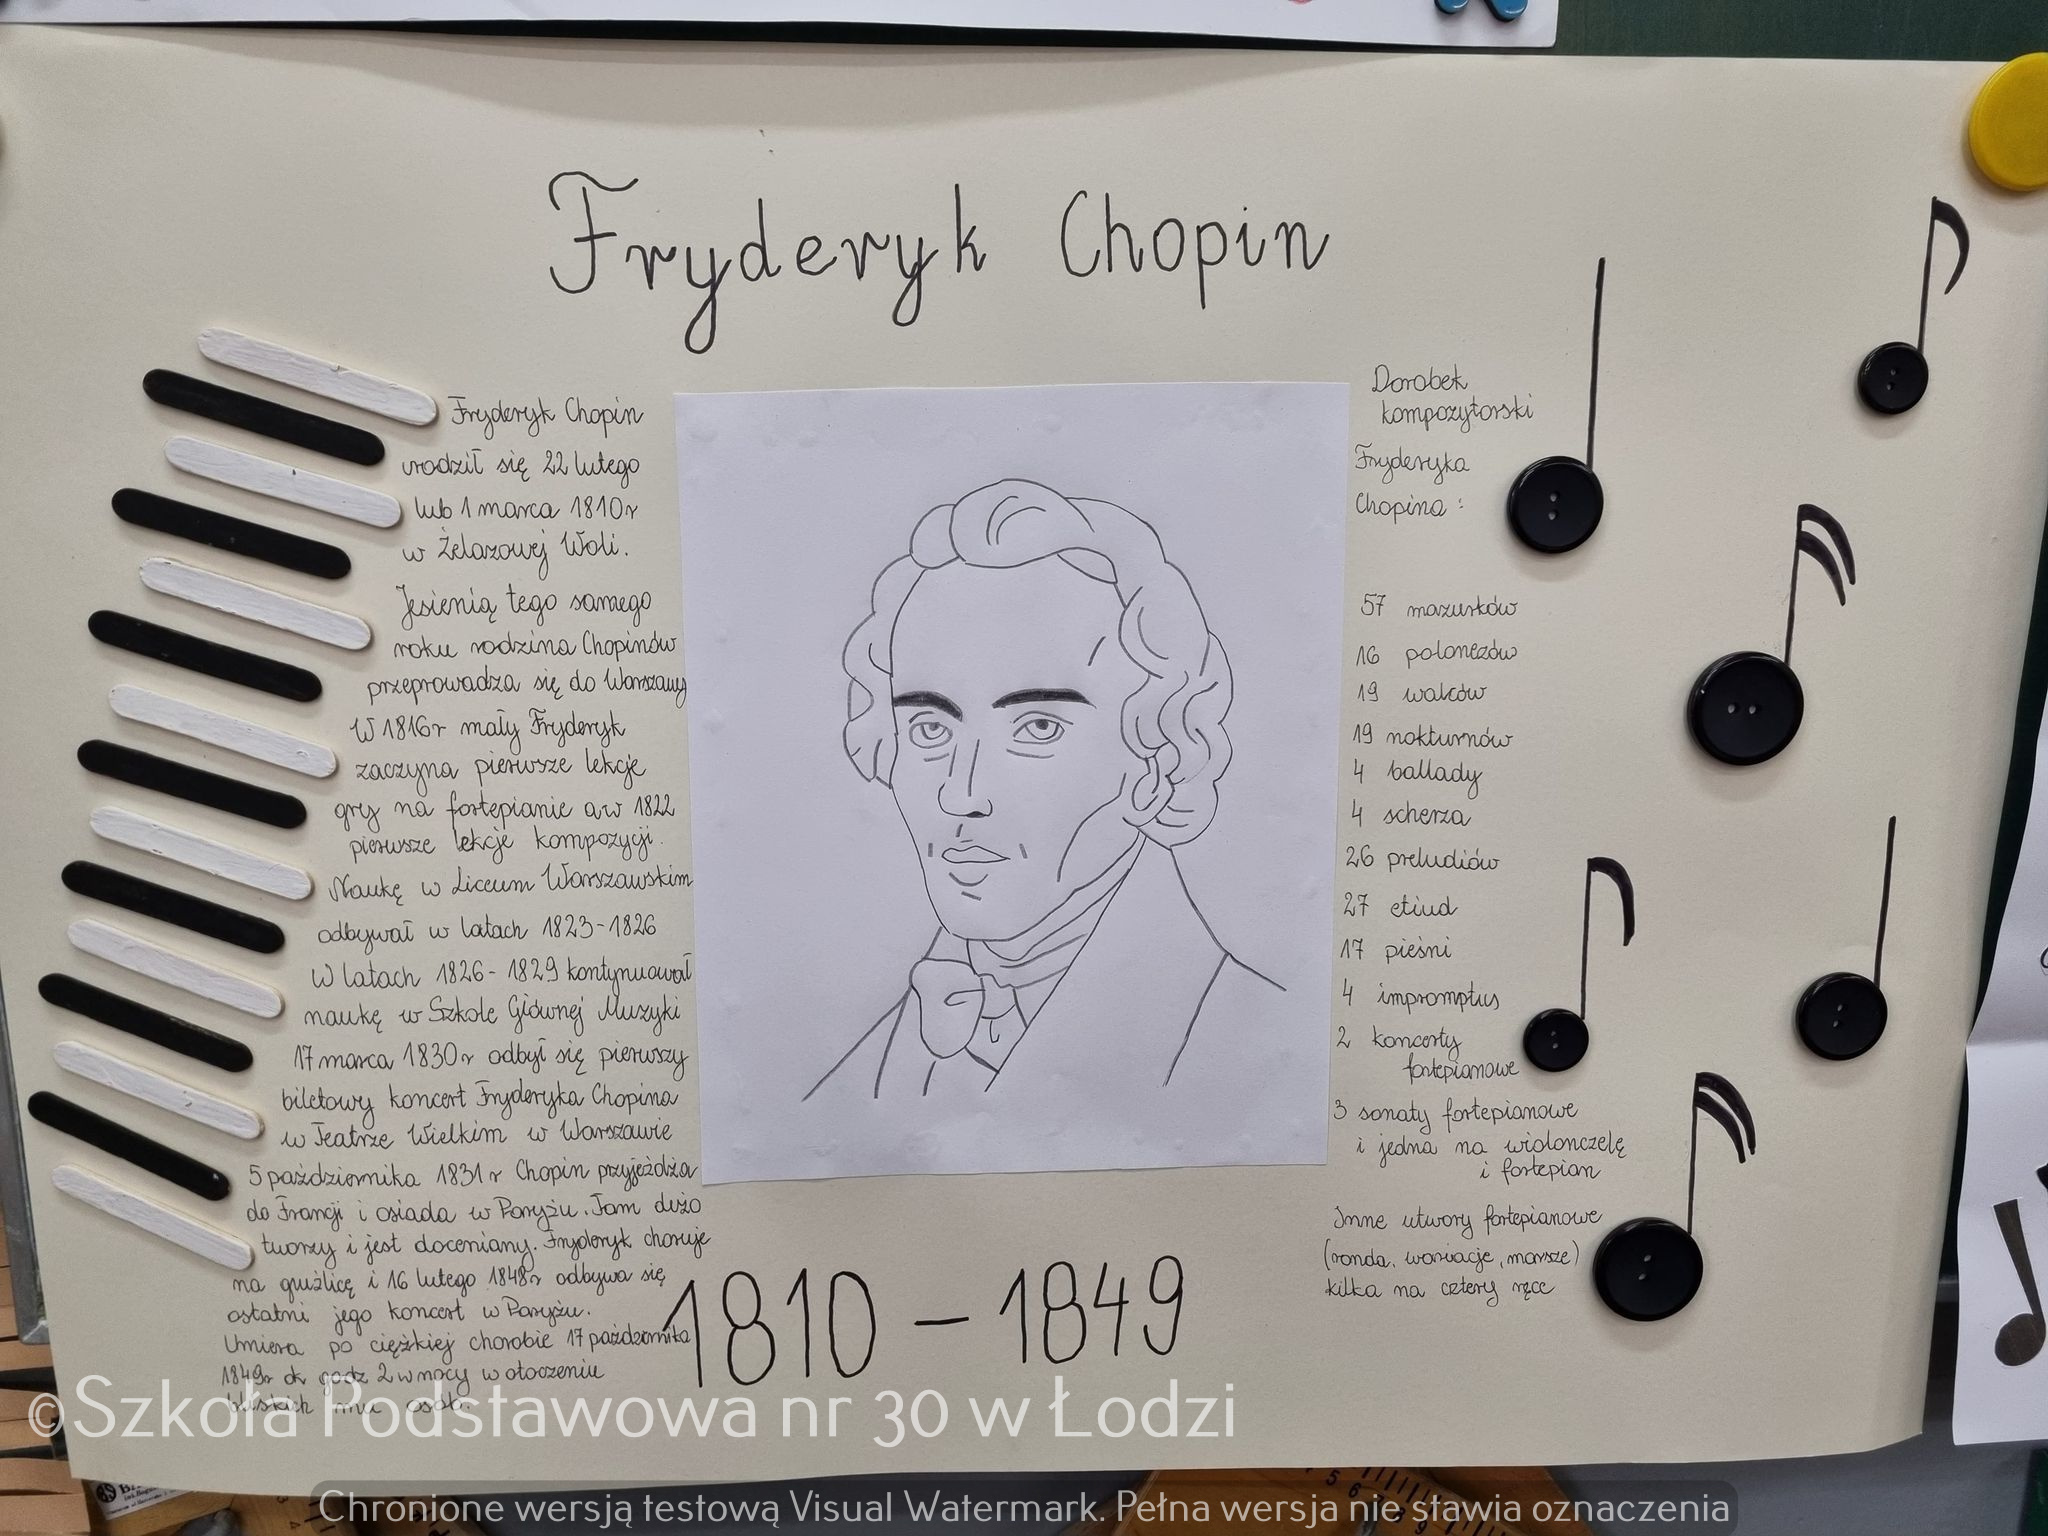 Fryderyk Chopin
Fryderyk Chopin
urodził się 22 lutego
lub 1 marca 1810r
w Żelazowej Woli.
Jesienią tego samego
roku rodzina Chopinów
przeprowadza się do Warszawy
W 1816r mały Fryderyk
zaczyna pierwsze lekcje
gry na fortepianie a w 1822
pierwsze lekcje kompozycji.
Naukę w Liceum Warszawskim
odbywał w latach 1823-1826
W latach 1826-1829 kontynuował
naukę w Szkole Głównej Muzyki
17 marca 1830r odbył się pierwszy
biletowy koncert Fryderyka Chopina
w Teatrze Wielkim w Warszawie
5 października 1831r Chopin przyjeżdża
do Francji i osiada w Paryżu. Tam dużo
tworzy i jest doceniany. Fryderyk choruje
na gruźlicę i 16 lutego 1848r odbywa się
ostatni jego koncert w Paryżu.
Umiera po ciężkiej chorobie 17 października
1849r ok godz 2 w nocy w otoczeniu
bliskich mu osób.
Dorobek
kompozytorski
Fryderyka
Chopina:
57 mazurków
16 polonezów
19 walców
19 nokturnów
4 ballady
4 scherza
26 preludiów
27 etiud
17 pieśni
4 impromptus
2 koncerty
fortepianowe
3 sonaty fortepianowe
i jedna na wiolonczelę
i fortepian
Inne utwory fortepianowe
(ronda, wariacje, marsze)
kilka na cztery ręce
1810-1849
©Szkoła Podstawowa nr 30 w Łodzi
Chronione wersją testową Visual Watermark. Pełna wersja nie stawia oznaczenia